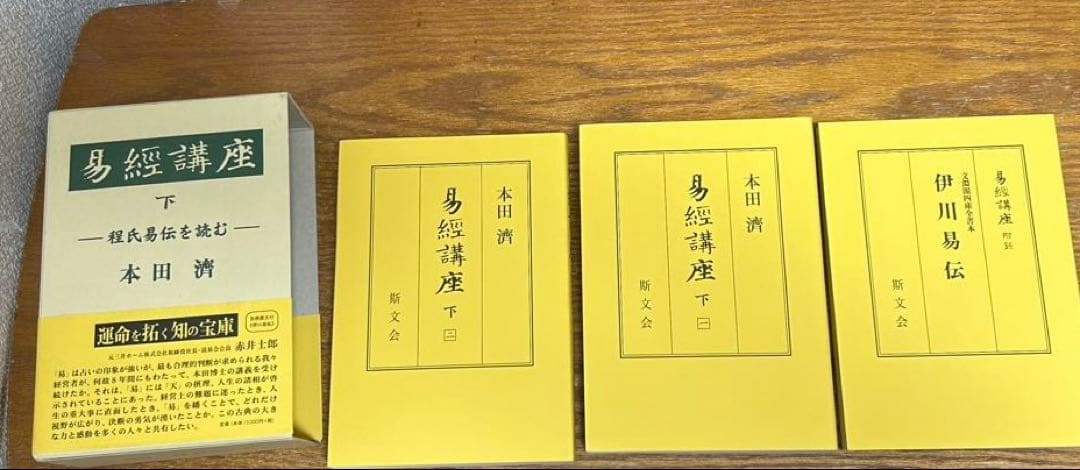 易經講座
下
―程氏易伝を読む―
本田 濟
運命を拓く知の宝庫
元三井ホーム株式会社取締役社長・
赤井士郎
「易」は占いの印象が強いが、最も合理的判断が求められる我々
経営者が、何故8年間にもわたって、本田博士の講義を受け
続けたか。それは、「易」には「天」の摂理、人生の諸相が啓
示されていることにあった。経営上の難題に迷ったとき、人
生の重大事に直面したとき、「易」を繙くことで、どれだけ
視野が広がり、決断の勇気が湧いたことか。この古典の大き
な力と感動を多くの人々と共有したい。
本田 濟
易經講座 下 二
斯文会
本田 濟
易經講座 下 一
斯文会
易經講座 附録
文淵閣四庫全書本
伊川易伝
斯文会